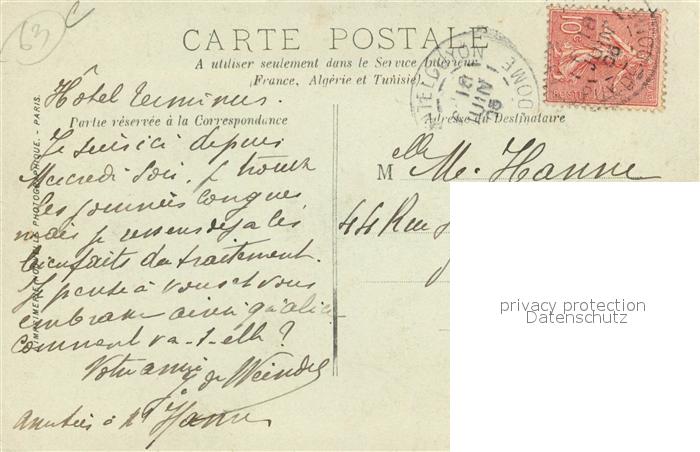 63
CARTE POSTALE
A utiliser seulement dans le Service Intérieur
(France, Algérie et Tunisie).
Hôtel terminus.
Partie réservée à la Correspondance
Adresse du Destinataire
Je suis ici depuis
Mercredi soir. Je trouve
les journées longues
mais je ressens déja les
bienfaits du traitement.
Je pense à vous et vous
embrasse ainsi qu'alice
Comment va-t-elle?
Votre amie
J. de
amitiés à Md Hanne
M elle M. Hanne
44 Rue
IMPRIMERIE PHOTOGRAPHIQUE. - PARIS.
CHATELGUYON
PUY-DE-DOME
10
privacy protection
Datenschutz